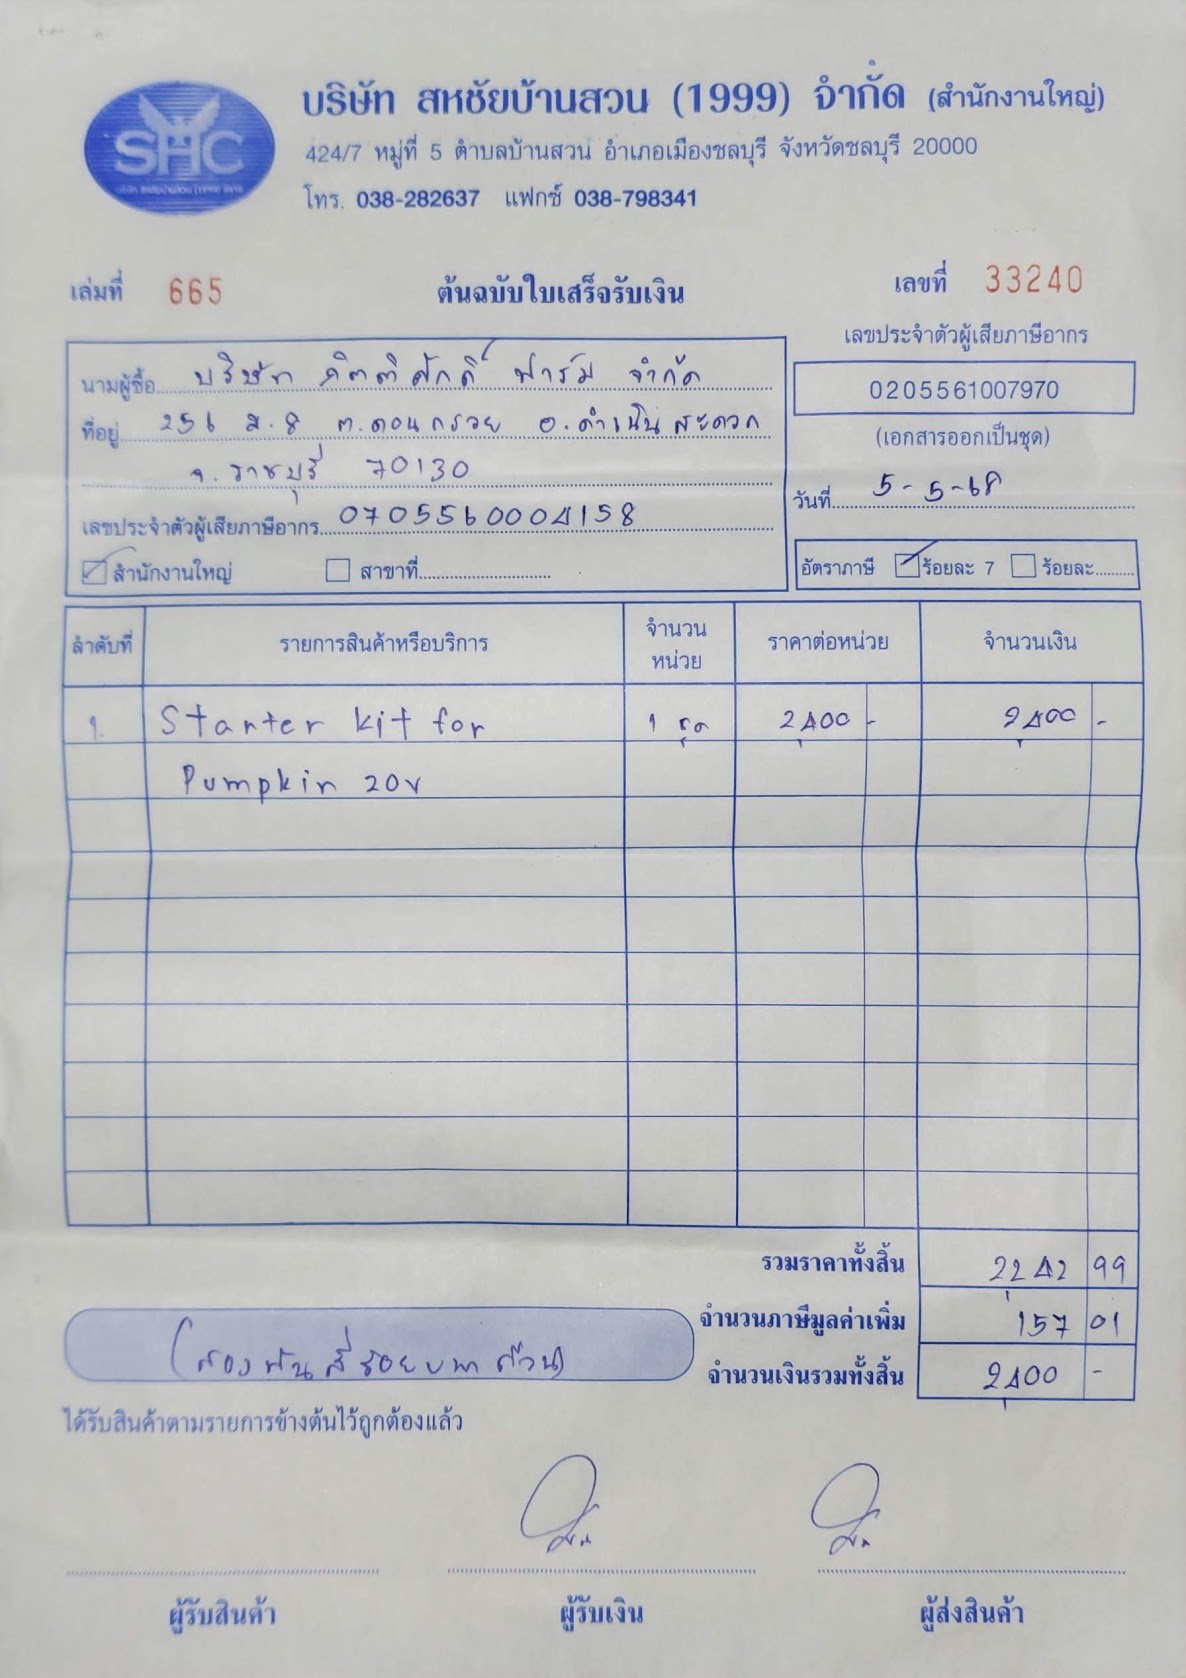 SHC
บริษัท สหชัยบ้านสวน (1999) จำกัด
บริษัท สหชัยบ้านสวน (1999) จำกัด (สำนักงานใหญ่)
424/7 หมู่ที่ 5 ตำบลบ้านสวน อำเภอเมืองชลบุรี จังหวัดชลบุรี 20000
โทร. 038-282637 แฟกซ์ 038-798341
เล่มที่ 665 ต้นฉบับใบเสร็จรับเงิน เลขที่ 33240
เลขประจำตัวผู้เสียภาษีอากร
0205561007970
(เอกสารออกเป็นชุด)
วันที่ 5-5-68
นามผู้ซื้อ บริษัท กิตติศักดิ์ ฟาร์ม จำกัด
ที่อยู่ 256 ม.8 ต.ดอนกรวย อ.ดำเนินสะดวก
จ.ราชบุรี 70130
เลขประจำตัวผู้เสียภาษีอากร 0705560004158
สำนักงานใหญ่ สาขาที่
อัตราภาษี ร้อยละ 7 ร้อยละ
ลำดับที่ รายการสินค้าหรือบริการ จำนวนหน่วย ราคาต่อหน่วย จำนวนเงิน
1. Starter kit for 1 ชุด 2,400 - 2,400 -
Pumpkin 20v
รวมราคาทั้งสิ้น 2,242 99
จำนวนภาษีมูลค่าเพิ่ม 157 01
(สองพันสี่ร้อยบาทถ้วน) จำนวนเงินรวมทั้งสิ้น 2,400 -
ได้รับสินค้าตามรายการข้างต้นไว้ถูกต้องแล้ว
ผู้รับสินค้า ผู้รับเงิน ผู้ส่งสินค้า